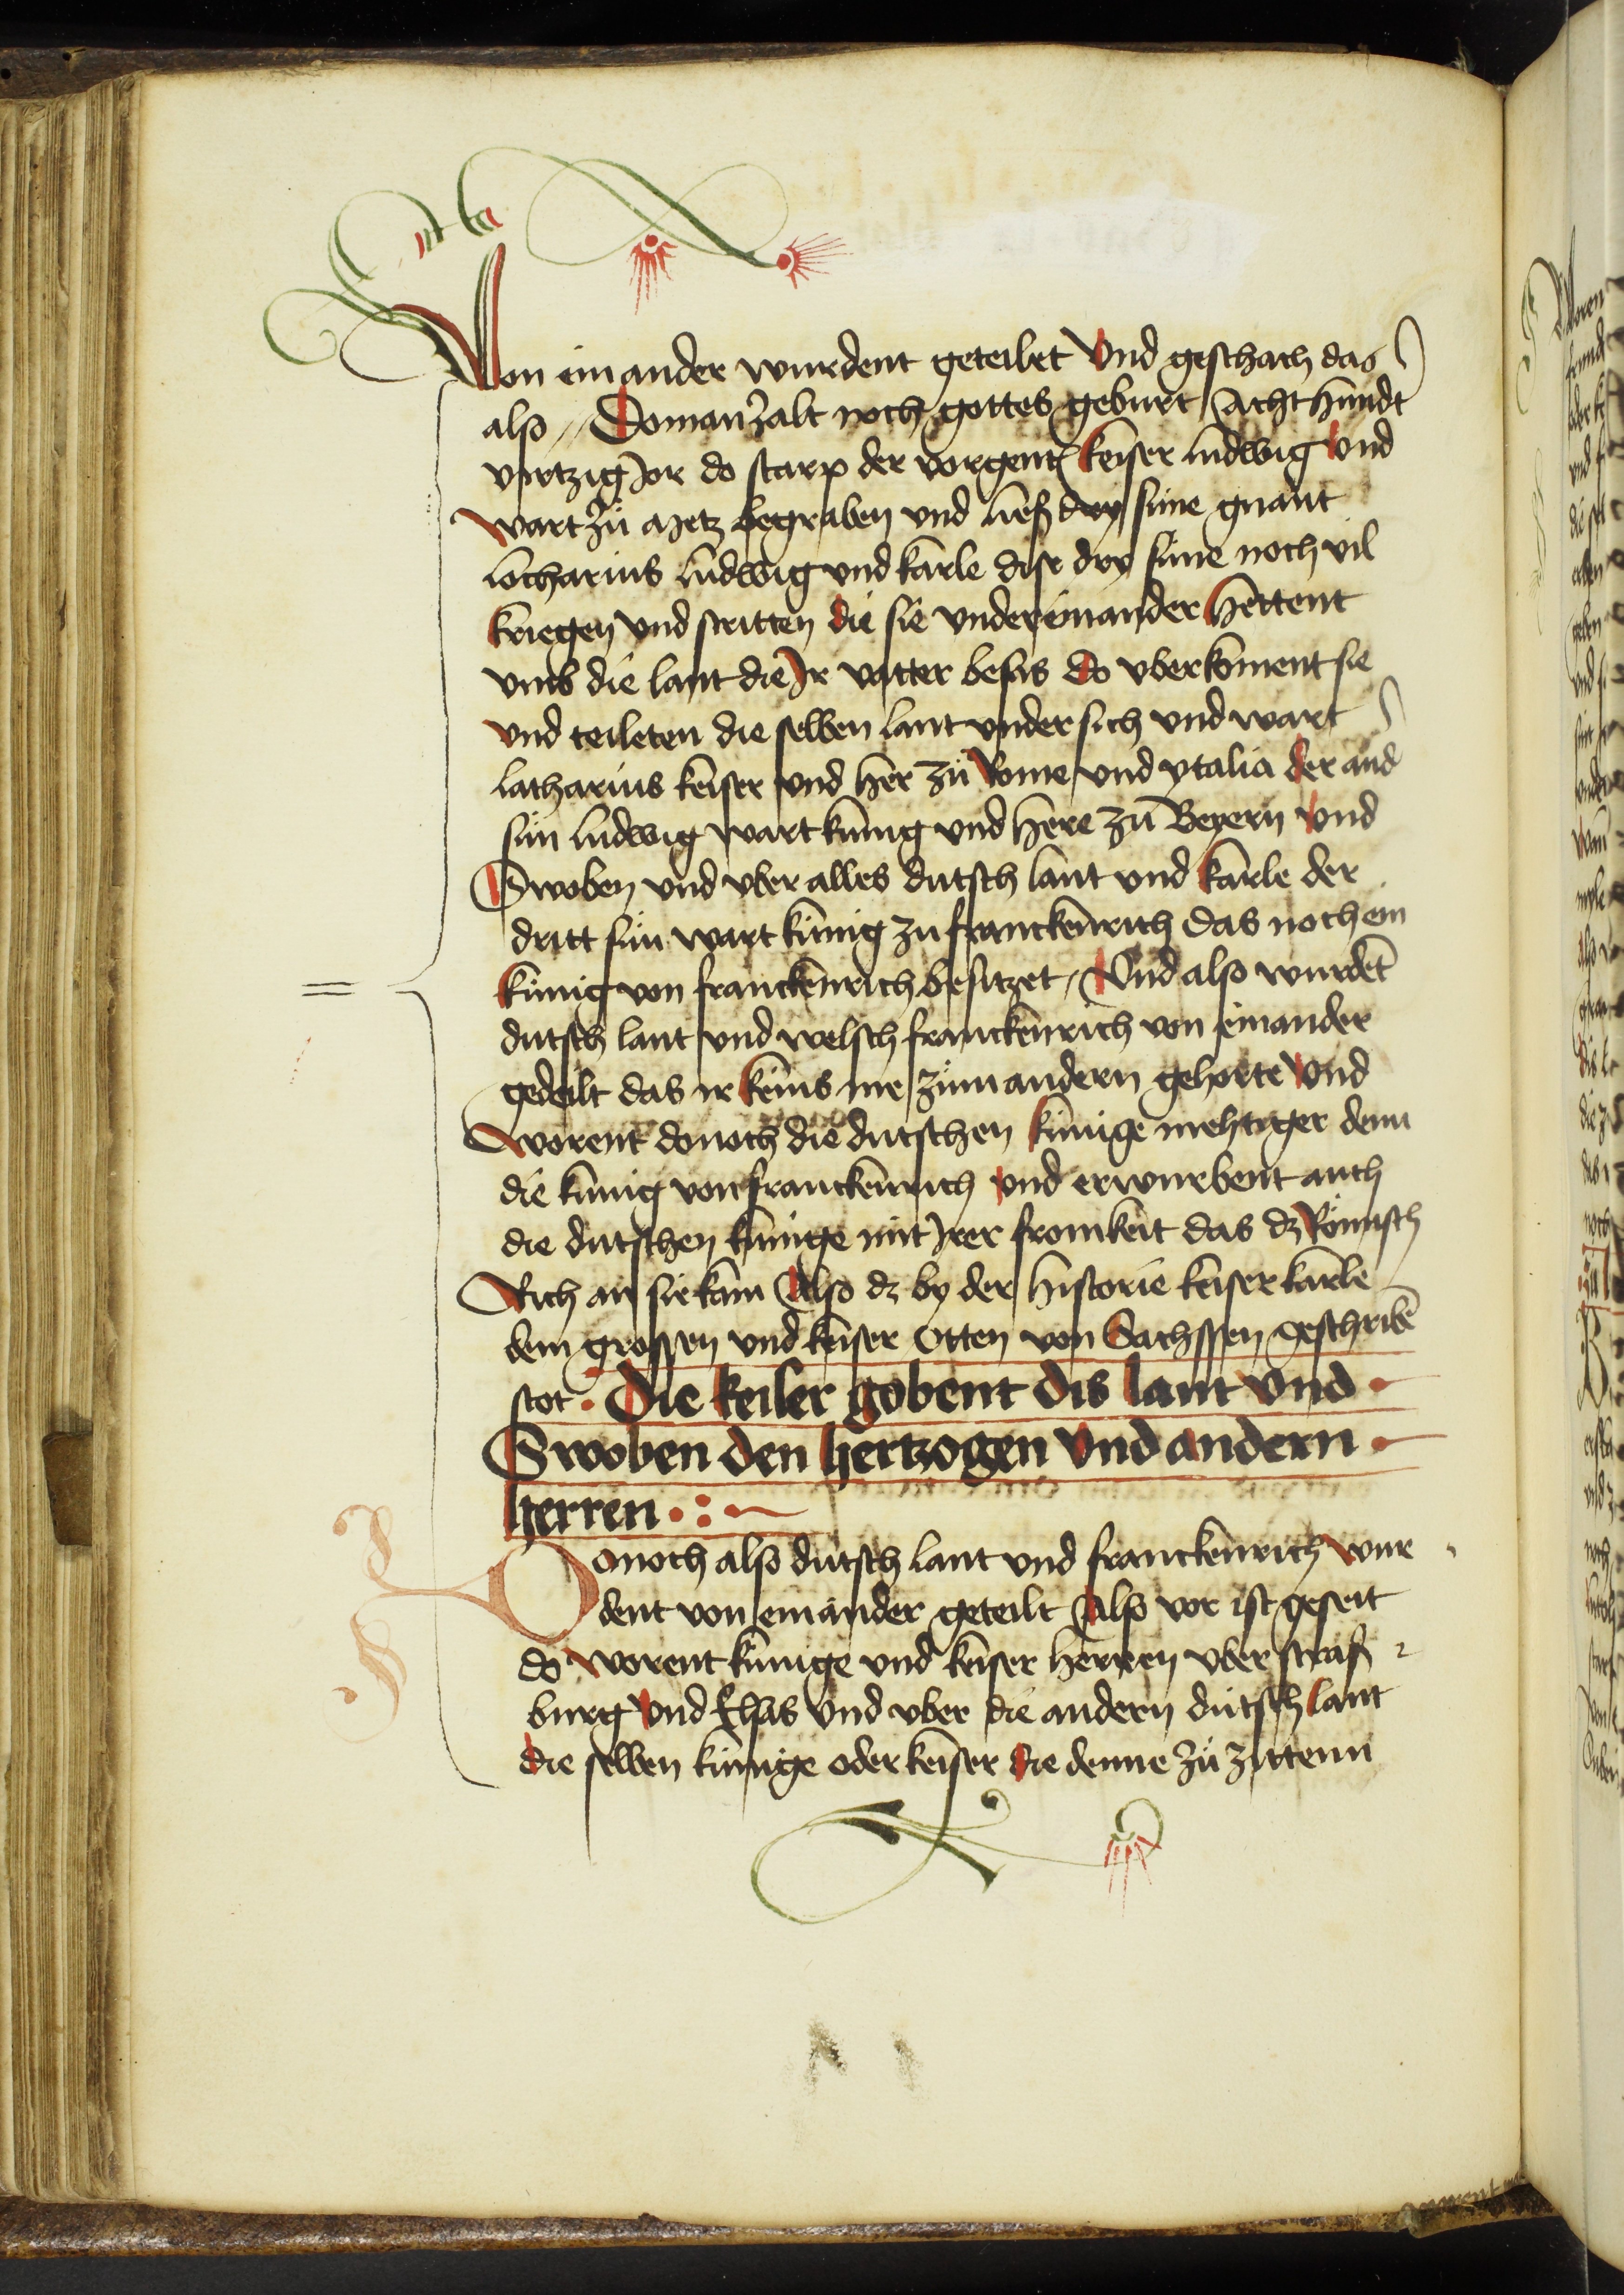 Von ein ander wurdent geteilet Vnd geschach das
also Do man zalt noch gottes geburt Acht hundt
viertzig Jor do starp der vorgent keiser ludwig Vnd
wart zů Metz begraben vnd ließ dry süne gnant
lotharius ludwig vnd karle dise dry süne noch vil
kriegen vnd stritten die sie vnder einander hettent
vmb die lant die Jr vatter besas do vberkoment sie
vnd teileten die selben lant vnder sich vnd wart
latharius keiser vnd her zů Rome vnd ytalia der and
sün ludwig wart künig vnd here zů Beyern vnd
Swoben vnd vber alles dutsch lant vnd karle der
dritt sün wart künig zu franckenrich das noch ein
künig von franckenrich besitzet Vnd also wurdēt
dutsch lant vnd welsch franckenrich von einander
gedeilt das ir keins me zům andern gehorte Vnd
worent donoch die dutschen künige mehtiger denn
die künig von franckenrich vnd erwurbent auch
die dutschen künige mit Jrer fromkeit das dz Römisch
Rich an sie kam Also dz by der historie keiser karle
dem grossen vnd keiser Otten von Sachssen geschribē
stot · Die keiser gobent dis lant vnd ·
Swoben den hertzogen vnd andern ·
herren · : ·
Donoch also dutsch lant vnd franckenrich wur
dent von einander geteilt Also vor ist geseit
do worent künige vnd keiser herren vber straß
burg vnd Elsas vnd vber die andern dutsch lant
die selben künige oder keiser die denne zů zittenn